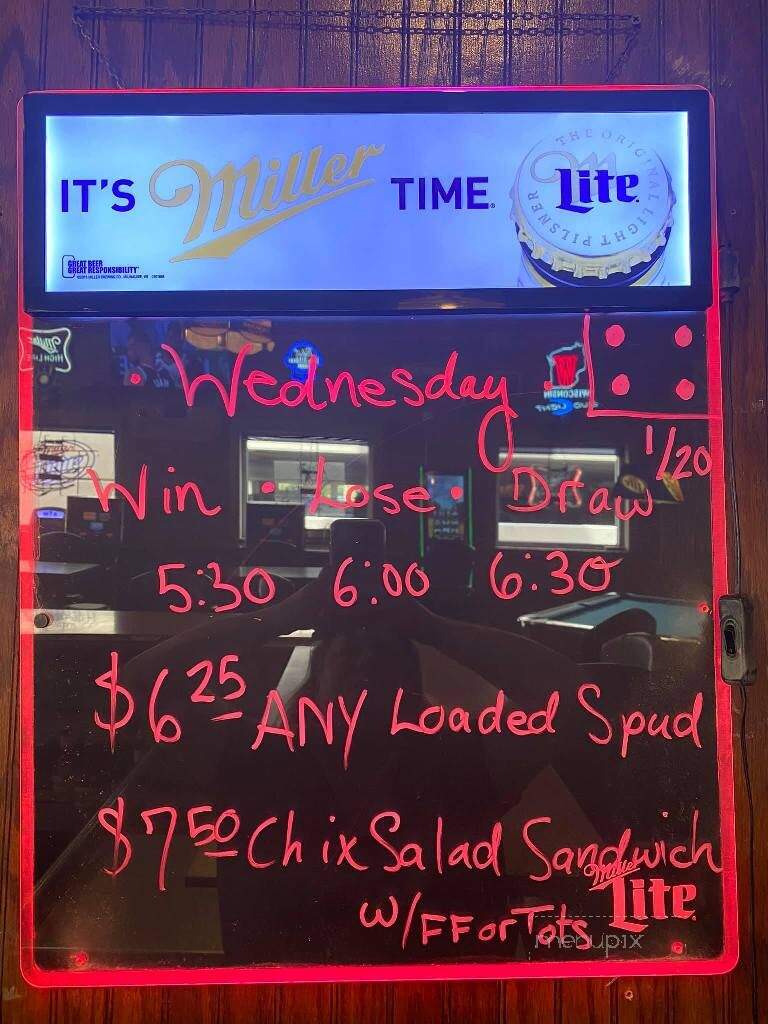 IT'S Miller TIME. Lite.
THE ORIGINAL LIGHT PILSNER
GREAT BEER
GREAT RESPONSIBILITY
Wednesday
WISCONSIN
1/20
Win • Lose • Draw
5:30 6:00 6:30
$6 25 ANY Loaded Spud
$7 50 Chix Salad Sandwich
w/FF or Tots
Miller
Lite
menupix